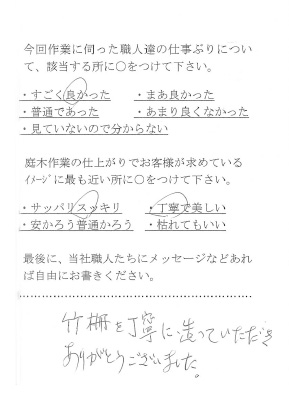 今回作業に伺った職人達の仕事ぶりについ
て、該当する所に○をつけて下さい。
・すごく良かった ・まあ良かった
・普通であった ・あまり良くなかった
・見ていないので分からない
庭木作業の仕上がりでお客様が求めている
ｲﾒｰｼﾞに最も近い所に○をつけて下さい。
・サッパリスッキリ ・丁寧で美しい
・安かろう普通かろう ・枯れてもいい
最後に、当社職人たちにメッセージなどあれ
ば自由にお書きください。
竹柵を丁寧に造っていただき
ありがとうございました。